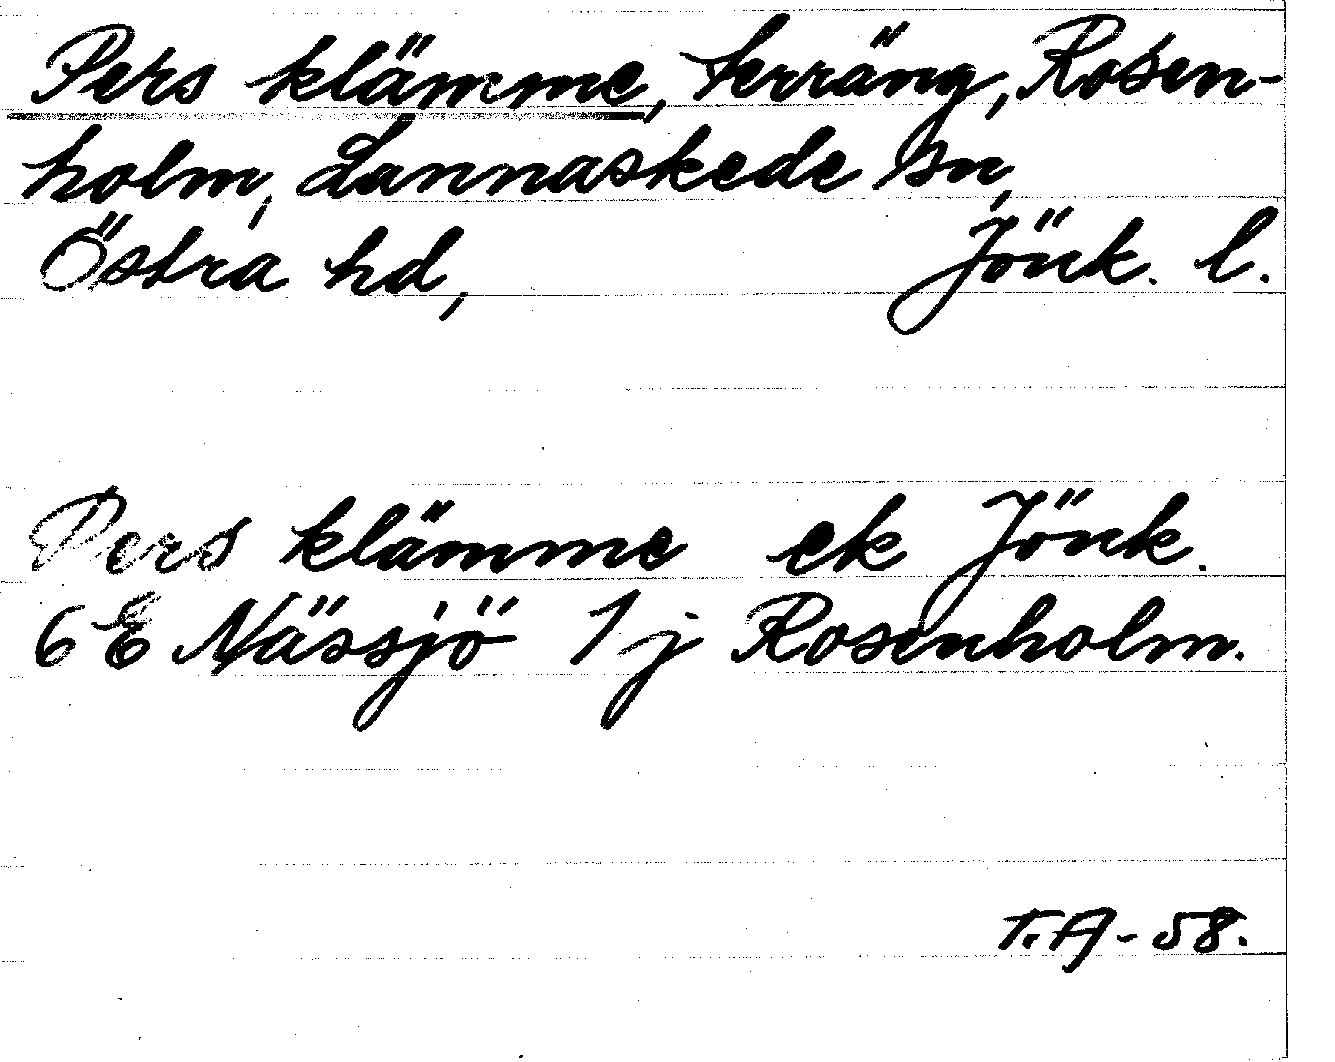 Pers klämme, terräng, Rosen-
holm, Lannaskede sn,
Östra hd, Jönk. l.
Pers klämme ek Jönk.
6 E Nässjö 1 j Rosenholm.
T.A-58.